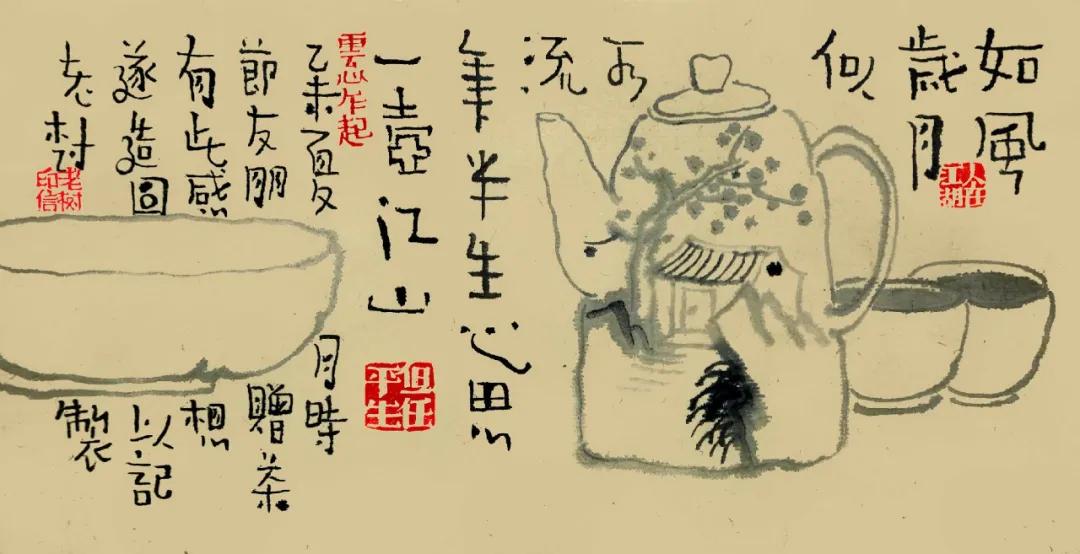 如風
歲月
似
水
流
年半生心思
一壺江山
乙未夏月時
節友朋贈茶
有此感想
遂造圖以記
老樹製
人在江湖
雲心乍起
但任平生
老树印信